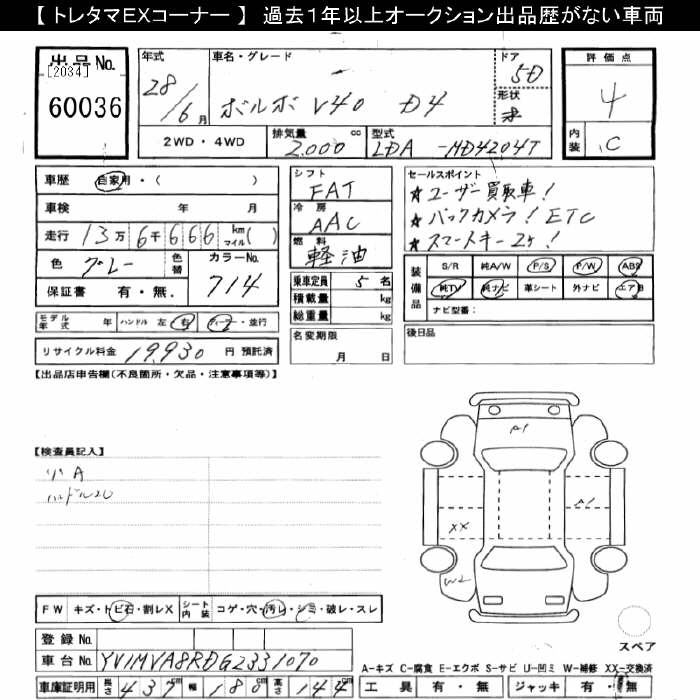 【 トレタマEXコーナー 】 過去1年以上オークション出品歴がない車両
出品No.
[2034]
60036
年式
28/6月
車名・グレード
ボルボ V40 D4
ドア
5D
形状
評価点
4
内装
C
2WD・4WD
排気量
2,000 cc
型式
LDA -MD4204T
車歴 自家用・( )
車検 年 月
走行 13万6千666 kmマイル( )
色 グレー 色替
カラーNo. 714
保証書 有・無.
モデル年式 年 ハンドル 左 右 ディーラー・並行
リサイクル料金 19,930 円 預託済
シフト
FAT
冷房
AAC
燃料
軽油
乗車定員 5 名
積載量 kg
総重量 kg
名変期限
月 日
セールスポイント
★ユーザー買取車!
★バックカメラ! ETC
★スマートキー2ヶ!
装備品
S/R 純A/W P/S P/W ABS
純TV 純ナビ 革シート 外ナビ エアB
ナビ型番:
後日品
【出品店申告欄(不良箇所・欠品・注意事項等)】
【検査員記入】
リA
ハンドルスレ
A1
A1
XX
W2
FW キズ・トビ石・割レX シート内装 コゲ・穴・汚レ・シミ・破レ・スレ
スペア
登録No.
車台No. YV1MVA8RDG2331070
A−キズ C−腐食 E−エクボ S−サビ U−凹ミ W−補修 XX−交換済
車庫証明用 長さ 437cm 幅 180cm 高さ 144cm
工具 有・無 ジャッキ 有・無